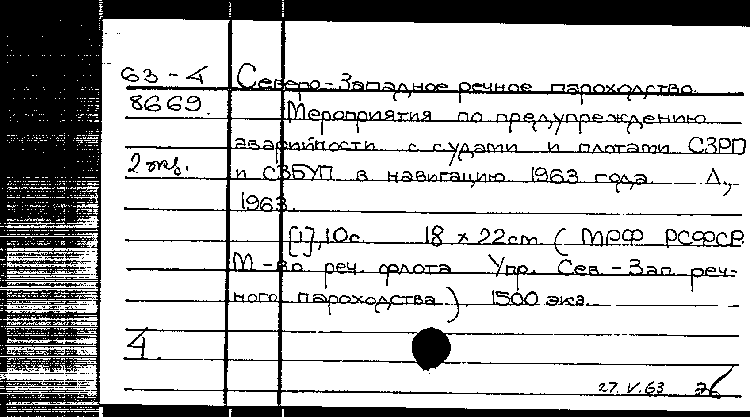 63-4 Северо-Западное речное пароходство.
8669. Мероприятия по предупреждению
аварийности с судами и плотами СЗРП
2 экз. и СЗБУП в навигацию 1963 года. Л.,
1963.
[1], 10с. 18 × 22 см. (МРФ РСФСР
М-во реч. флота Упр. Сев-Зап. реч-
ного пароходства). 1500 экз.
4.
27.V.63